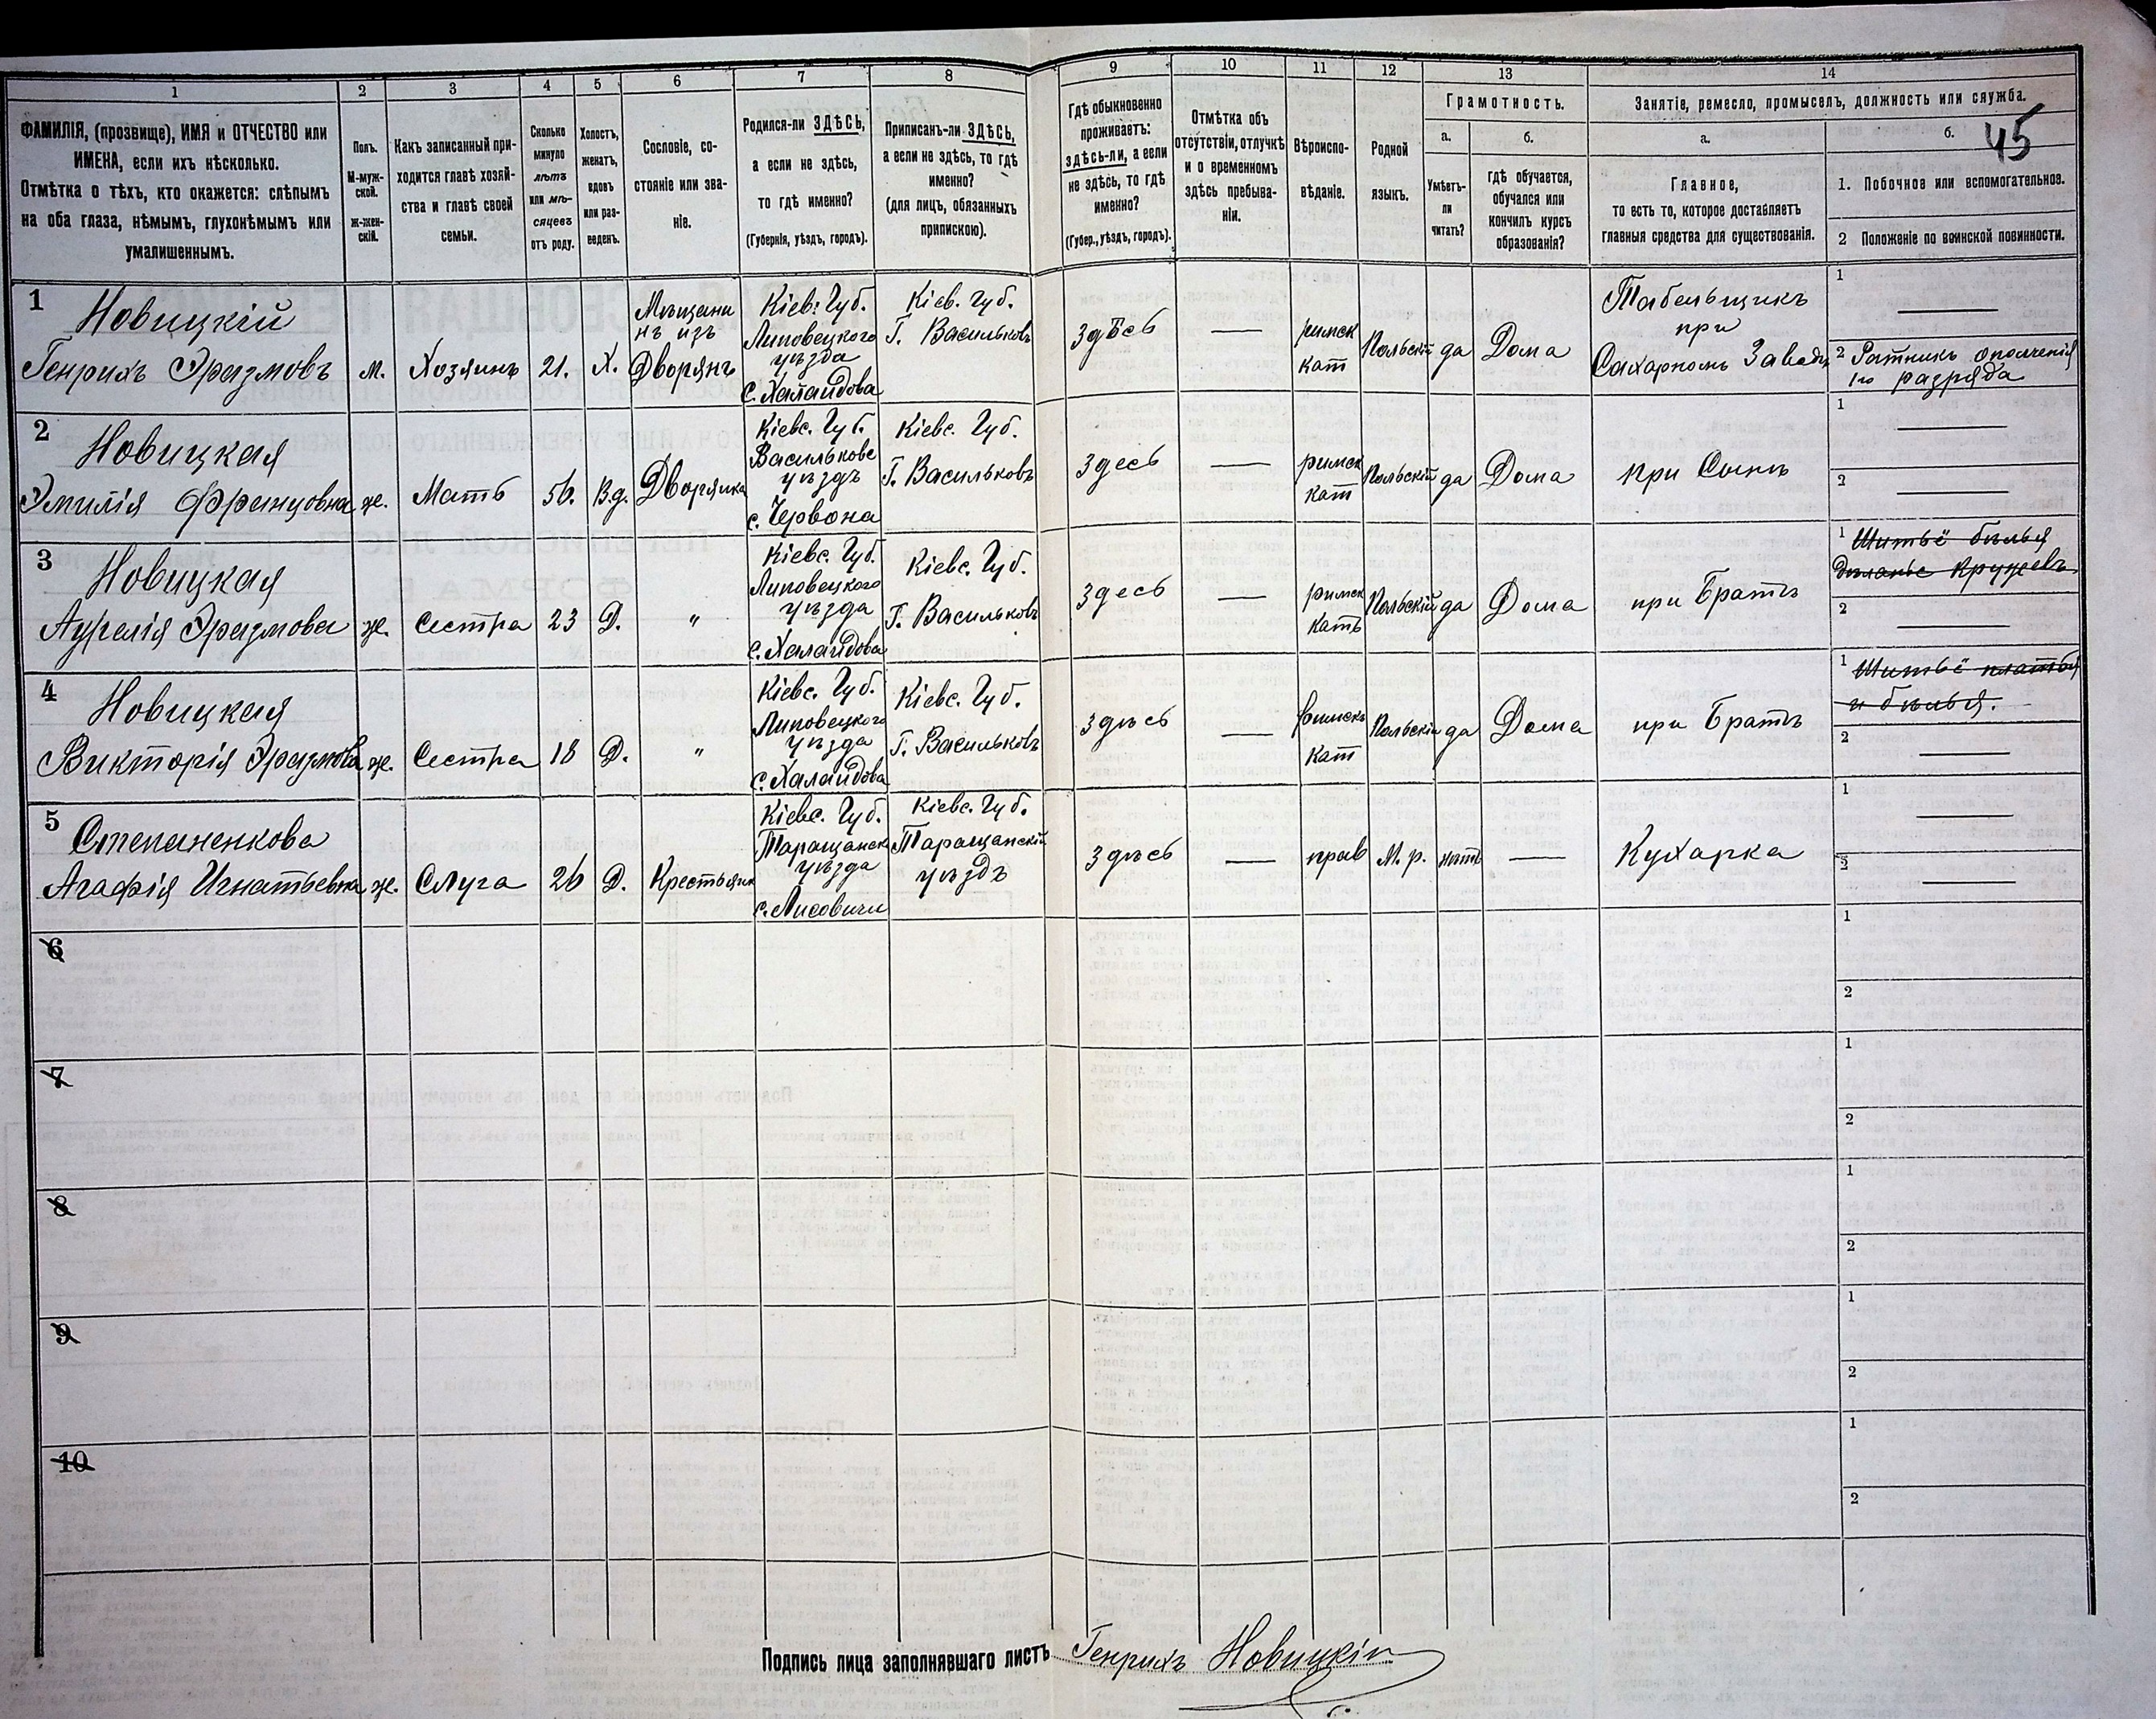 1
2
3
4
5
6
7
8
9
10
11
12
13
14
45
ФАМИЛІЯ, (прозвище), ИМЯ и ОТЧЕСТВО или
ИМЕНА, если ихъ нѣсколько.
Отмѣтка о тѣхъ, кто окажется: слѣпымъ
на оба глаза, нѣмымъ, глухонѣмымъ или
умалишеннымъ.
Полъ.
М-муж-
ской.
Ж-жен-
скій.
Какъ записанный при-
ходится главѣ хозяй-
ства и главѣ своей
семьи.
Сколько
минуло
лѣтъ
или мѣ-
сяцевъ
отъ роду.
Холостъ,
женатъ,
вдовъ
или раз-
веденъ.
Сословіе, со-
стояніе или зва-
ніе.
Родился-ли ЗДѢСЬ,
а если не здѣсь,
то гдѣ именно?
(Губернія, уѣздъ, городъ).
Приписанъ-ли ЗДѢСЬ,
а если не здѣсь, то гдѣ
именно?
(для лицъ, обязанныхъ
припискою).
Гдѣ обыкновенно
проживаетъ:
здѣсь-ли, а если
не здѣсь, то гдѣ
именно?
(Губер., уѣздъ, городъ).
Отмѣтка объ
отсутствіи, отлучкѣ
и о временномъ
здѣсь пребыва-
ніи.
Вѣроиспо-
вѣданіе.
Родной
языкъ.
Грамотность.
а.
Умѣетъ-
ли
читать?
б.
гдѣ обучается,
обучался или
кончилъ курсъ
образованія?
Занятіе, ремесло, промыселъ, должность или служба.
а.
Главное,
то есть то, которое доставляетъ
главныя средства для существованія.
б.
1. Побочное или вспомогательное.
2 Положеніе по воинской повинности.
1
Новицкій
Генрихъ Эразмовъ
м.
Хозяинъ
21.
Х.
Мѣщани
нъ изъ
Дворянъ
Кіев: Губ.
Липовецкого
уѣзда
с. Халаидова
Кіев. Губ.
Г. Васильковъ
Здѣсь
—
римск
кат
Польскій
да
Дома
Табельщикъ
при
Сахарномъ Заводѣ
1 —
2 Ратникъ ополченія
1го разряда
2
Новицкая
Эмилія Францовна
ж.
Мать
56.
Вд.
Дворянка
Кіевс. Губ.
Васильковс
уѣздъ
с. Червона
Кіевс. Губ.
Г. Васильковъ
Здесь
—
римск
кат
Польскій
да
Дома
при Сынѣ
1 —
2 —
3
Новицкая
Аурелія Эразмова
ж.
Сестра
23
Д.
"
Кіевс. Губ.
Липовецкого
уѣзда
с. Халаидова
Кіевс. Губ.
Г. Васильковъ
Здесь
—
римск
катъ
Польскій
да
Дома
при Братѣ
1 Шитьё бѣлья
дѣланье Кружевъ
2 —
4
Новицкая
Викторія Эразмова
ж.
Сестра
18
Д.
"
Кіевс. Губ.
Липовецкого
уѣзда
с. Халаидова
Кіевс. Губ.
Г. Васильковъ
Здѣсь
—
римск
кат
Польскій
да
Дома
при Братѣ
1 Шитьё платья
и бѣлья.
2 —
5
Степаненкова
Агафія Игнатьевна
ж.
Слуга
26
Д.
Крестьянк
Кіевс. Губ.
Таращанск
уѣзда
с. Лисовичи
Кіевс. Губ.
Таращанскій
уѣздъ
Здѣсь
—
прав
М. р.
нѣтъ
—
Кухарка
1 —
2 —
6
1
2
7
1
2
8
1
2
9
1
2
10
1
2
Подпись лица заполнявшаго листъ Генрихъ Новицкій